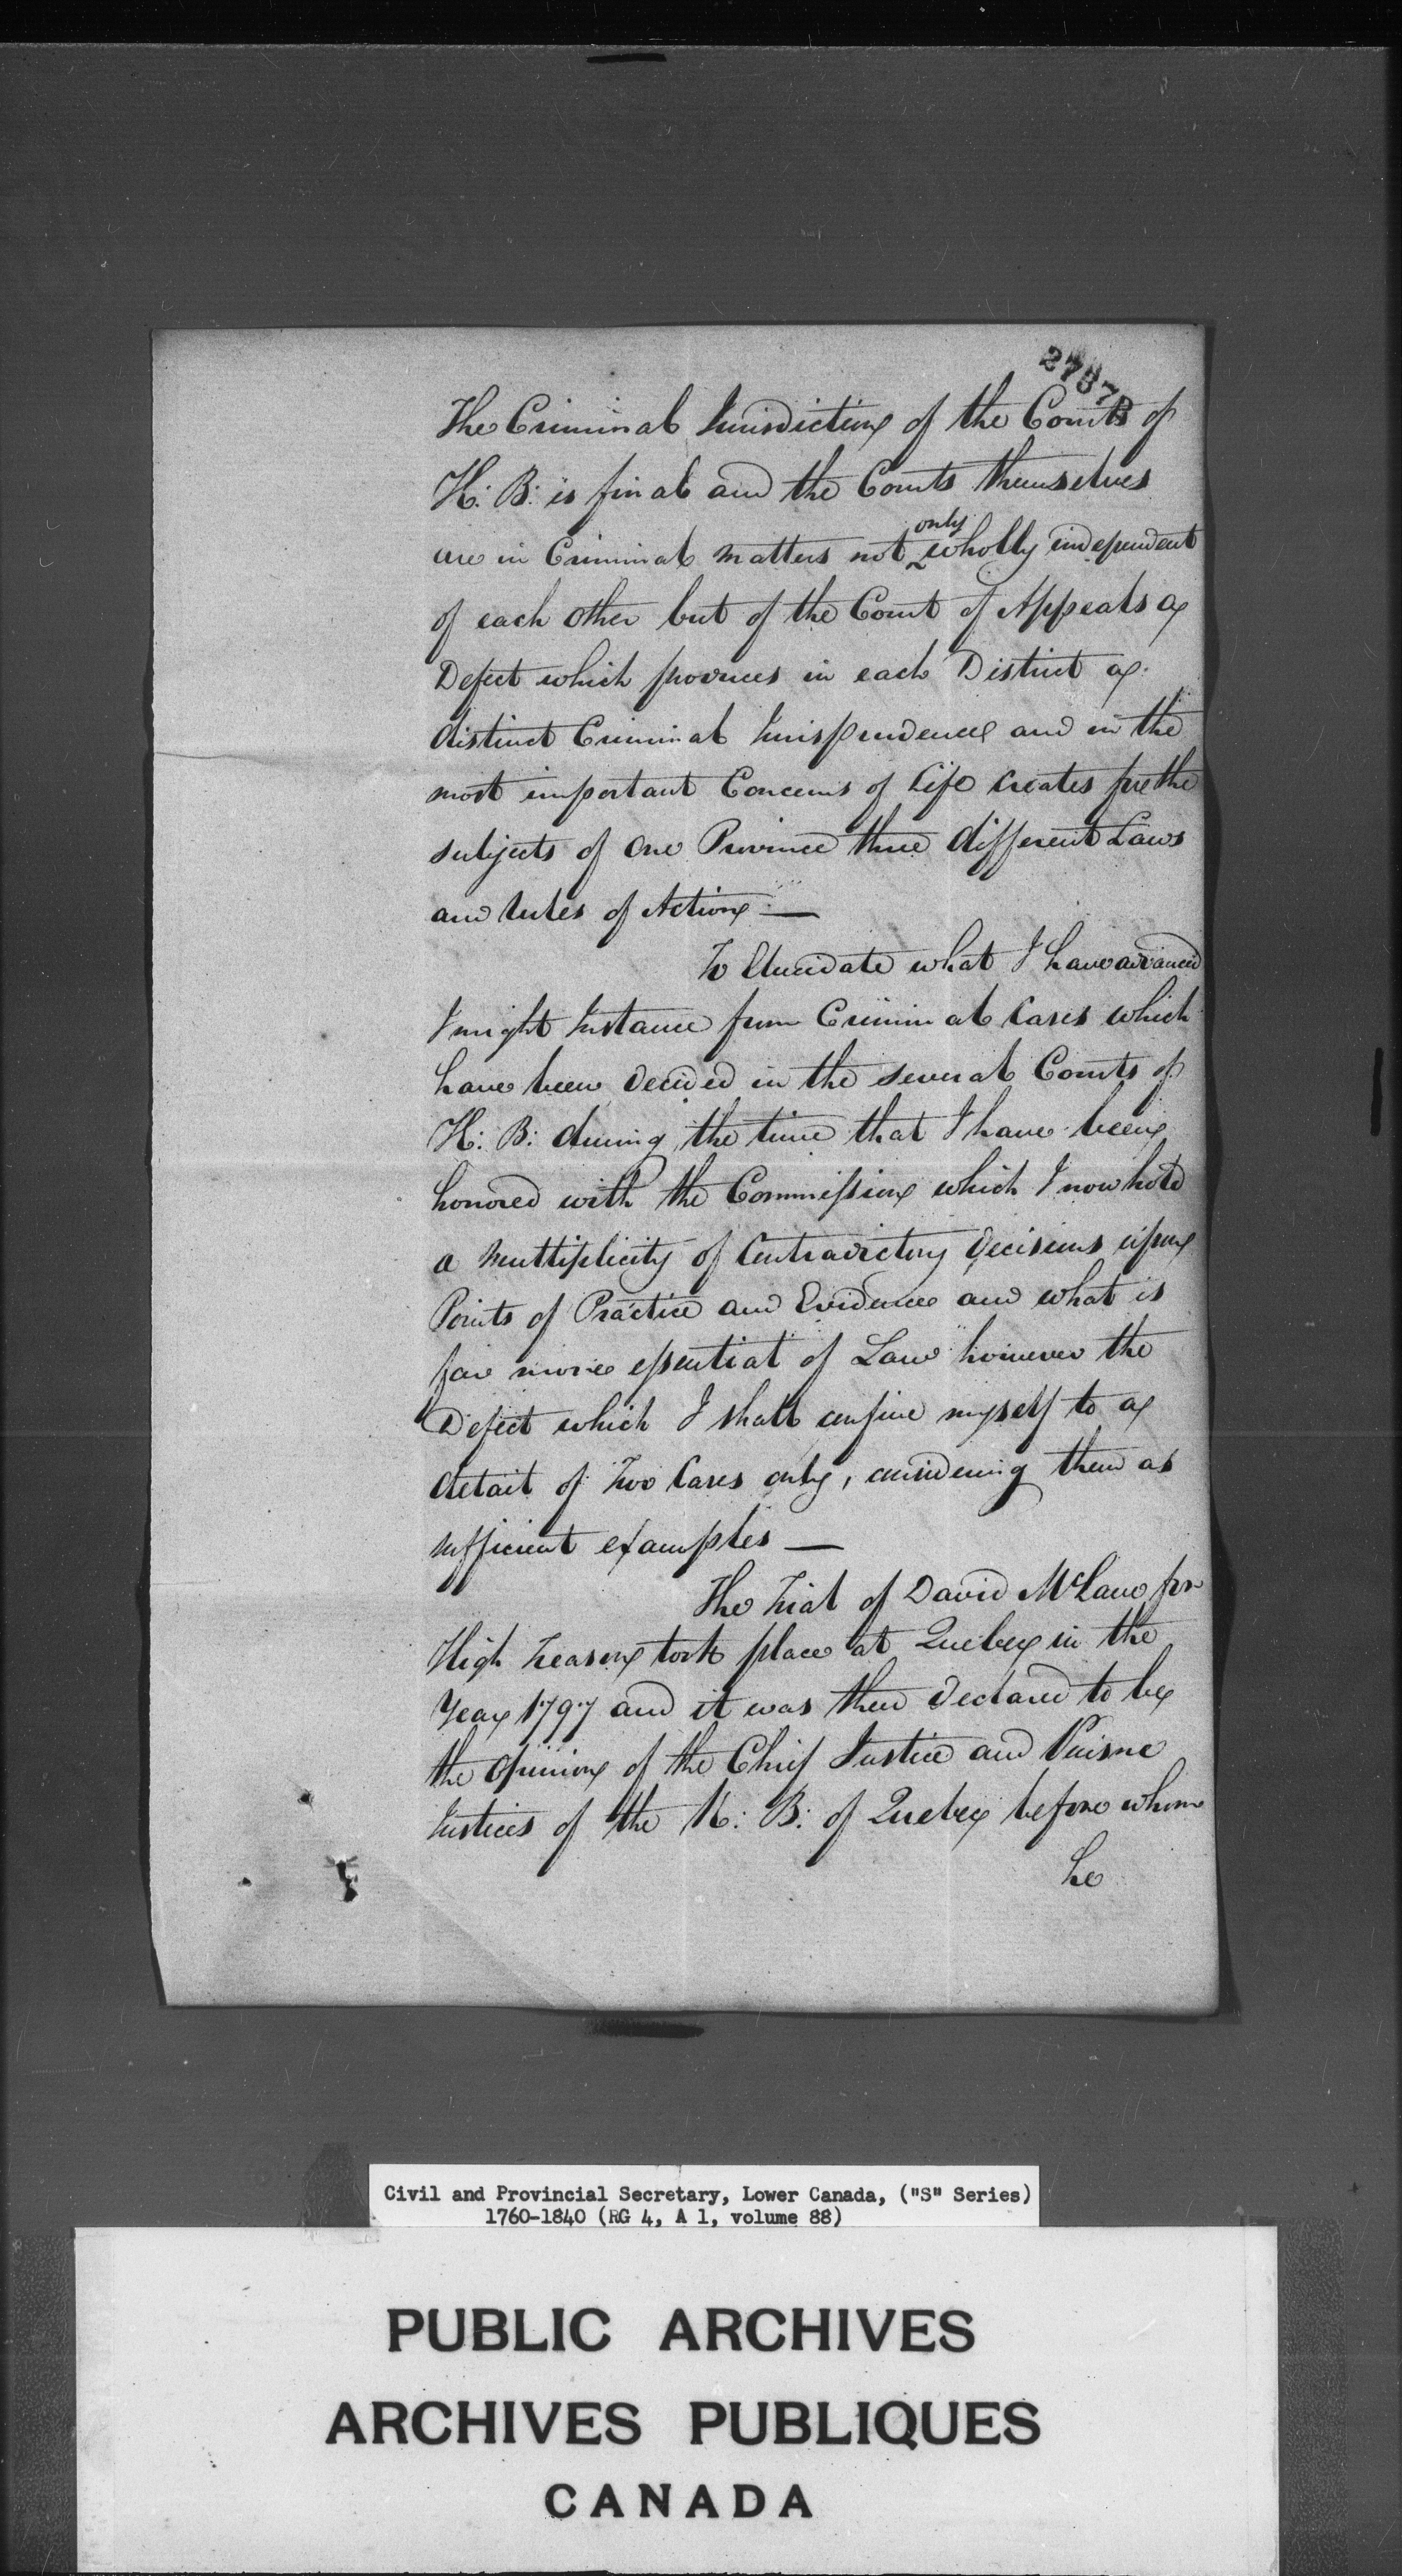 27873
The Criminal Jurisdiction of the Courts of
K: B: is final and the Courts themselves
are in Criminal matters not only wholly independent
of each other but of the Court of Appeals a
Defect which produces in each District a
distinct Criminal Jurisprudence and in the
most important Concerns of Life creates for the
subjects of one Province three different Laws
and Rules of Action —
To Elucidate what I have advanced
I might Instance from Criminal Cases which
have been decided in the several Courts of
K: B: during the time that I have been
honored with the Commission which I now hold
a Multiplicity of Contradictory Decisions upon
Points of Practice and Evidence and what is
far more essential of Law however the
Defect which I shall confine myself to a
detail of Two Cases only, considering them as
sufficient examples —
The Trial of David McLane for
High Treason took place at Quebec in the
Year 1797 and it was then declared to be
the opinion of the Chief Justice and Puisne
Justices of the K: B: of Quebec before whom
he
Civil and Provincial Secretary, Lower Canada, ("S" Series)
1760-1840 (RG 4, A 1, volume 88)
PUBLIC ARCHIVES
ARCHIVES PUBLIQUES
CANADA